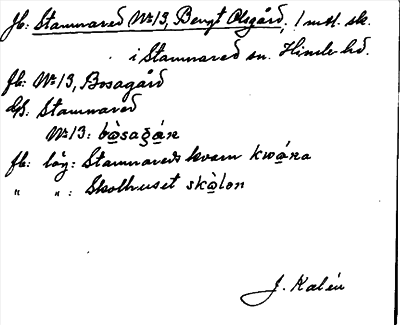 Jb: Stamnared No 13, Bengt Olsgård, 1 mtl. sk.
i Stamnared sn. Himle hd.
fb: No 13, Bosagård
GS. Stamnared
No 13: bòsagå̀r
fb: läg: Stamnareds kvarn kwὰṇa
" ": Skolhuset skòlon
J. Kalén